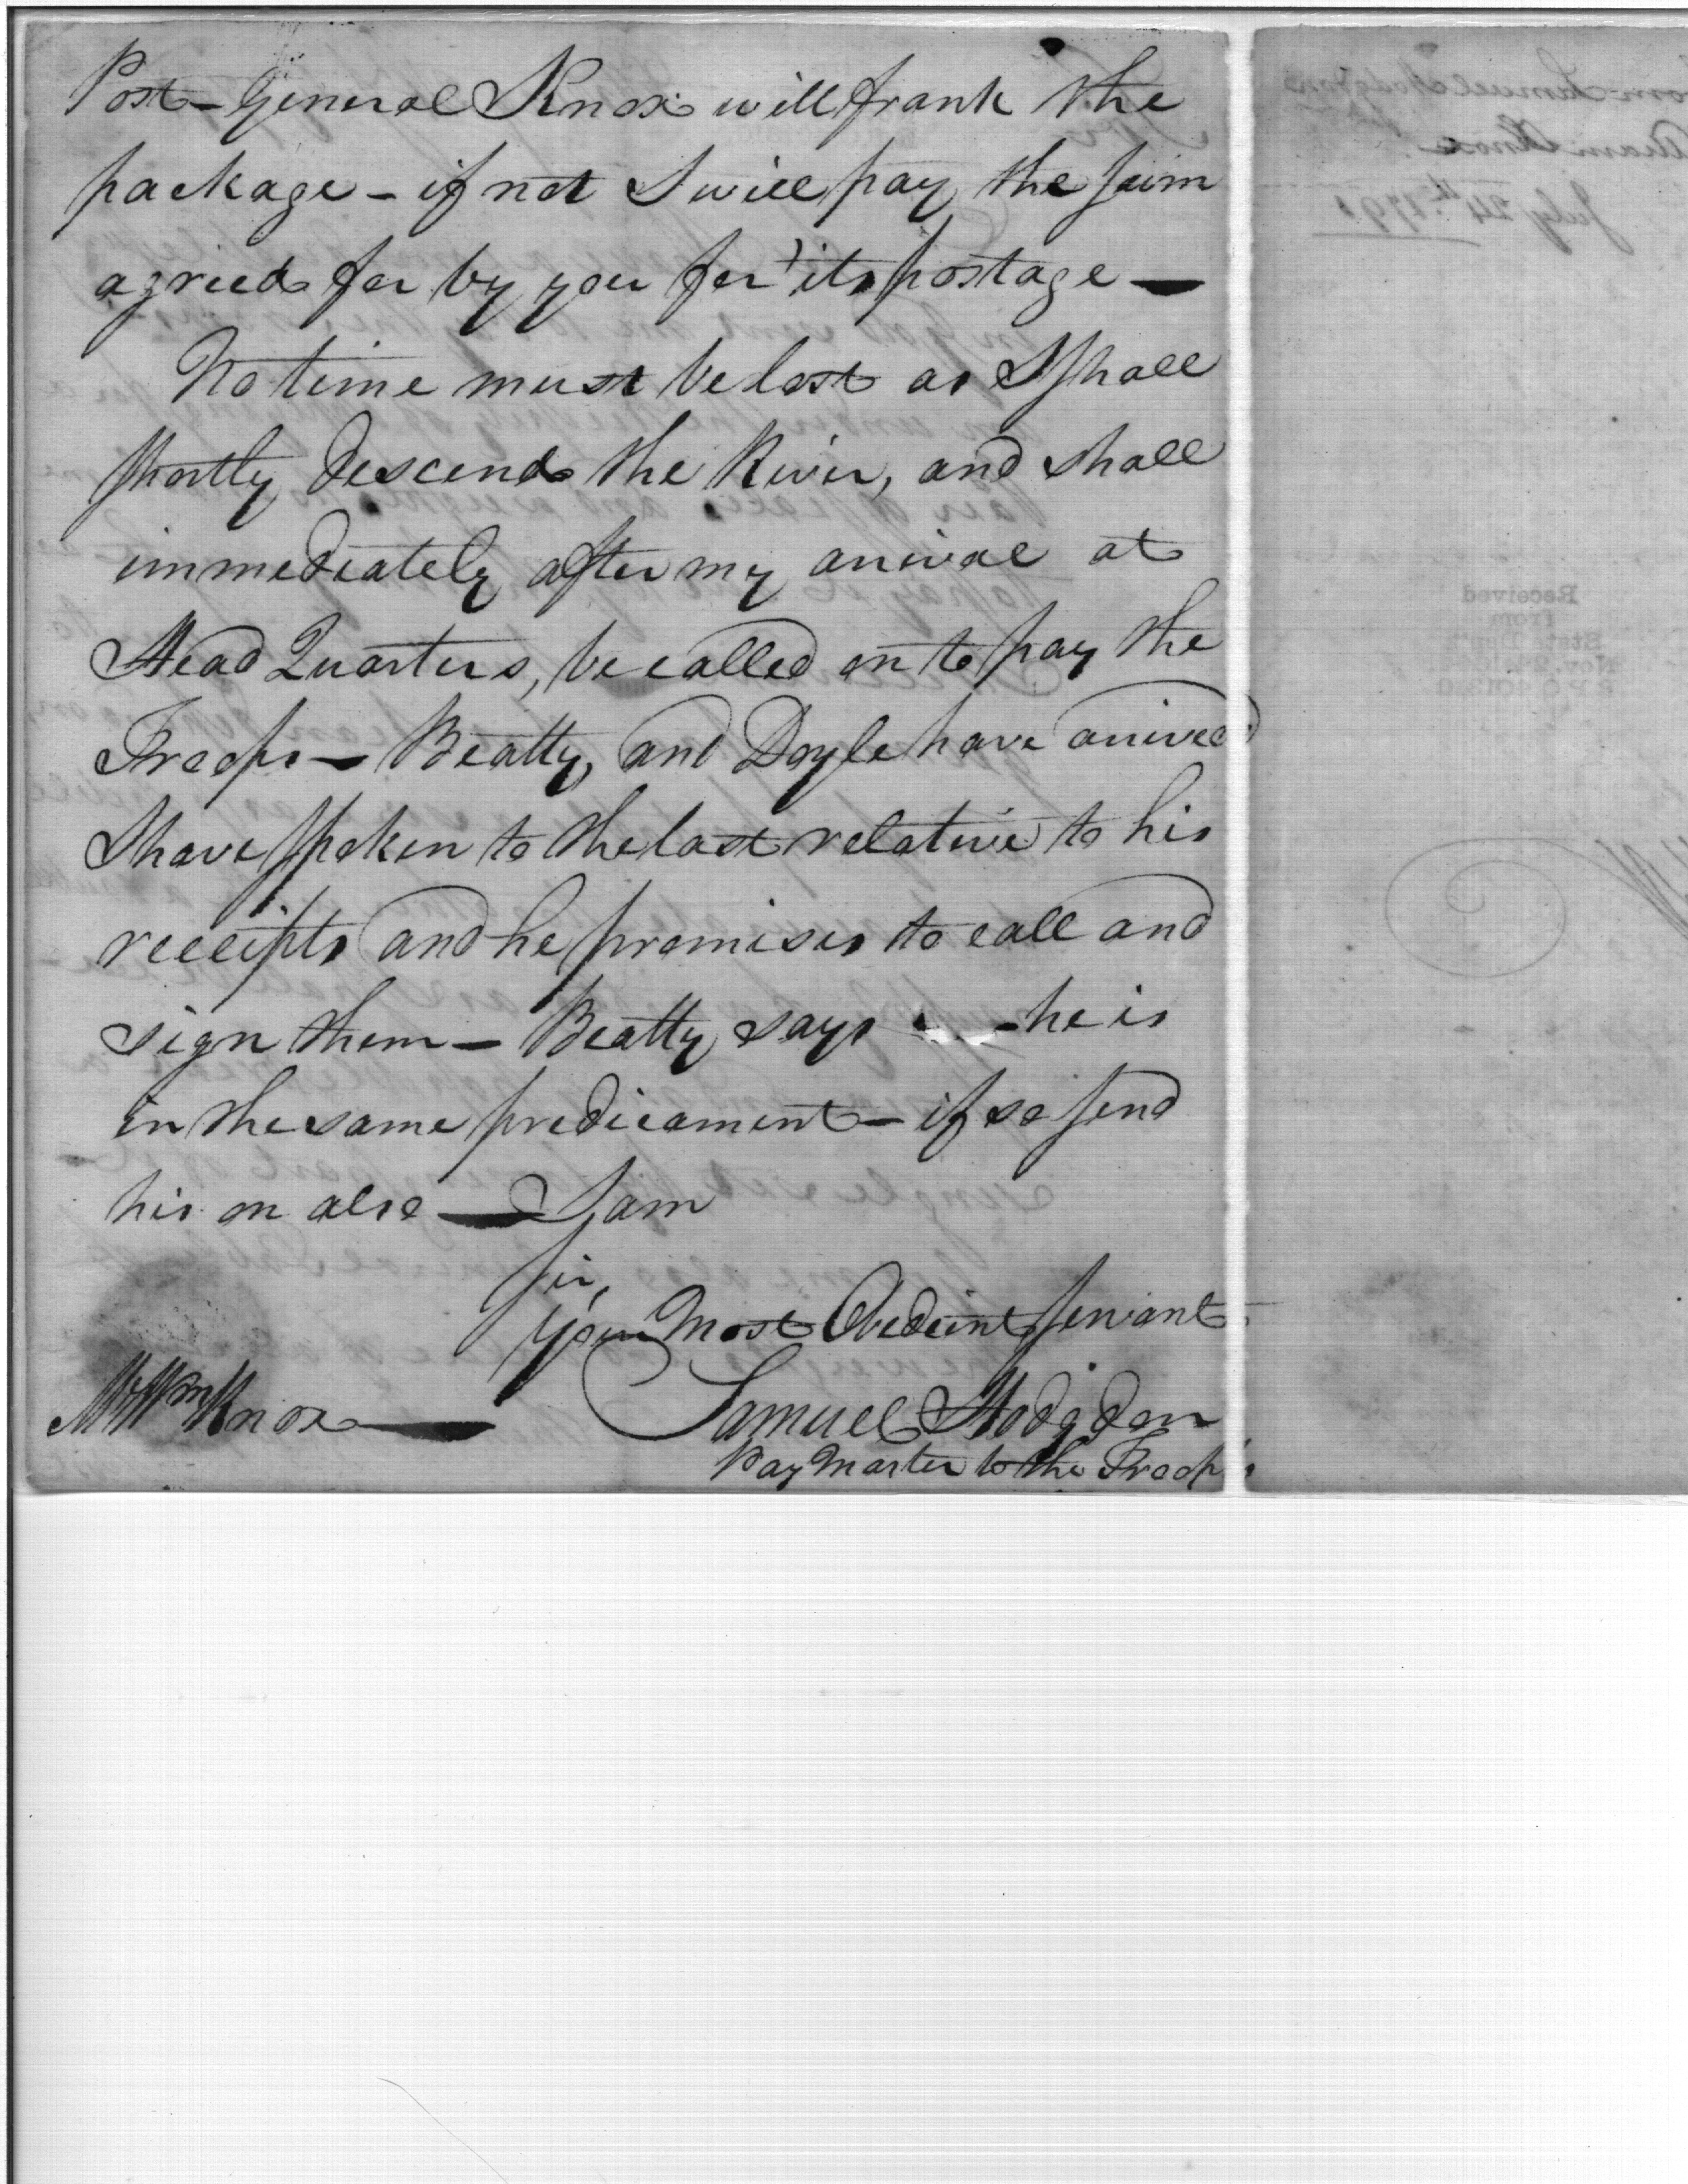 Post - General Knox will frank the
package - if not I will pay the sum
agreed for by you for its postage —
No time must be lost as I shall
shortly descend the River, and shall
immediately after my arrival at
Head Quarters, be called on to pay the
Troops — Beatty, and Doyle have arrived
I have spoken to the last relative to his
receipts and he promises to call and
sign them — Beatty says he is
in the same predicament — if so send
his on also — I am
Sir,
Your Most Obedient Servant
Samuel Hodgdon
Pay Master to the Troops
Mr Wm Knox —
Samuel Hodgdon
Knox
July 24th 1791
Received
from